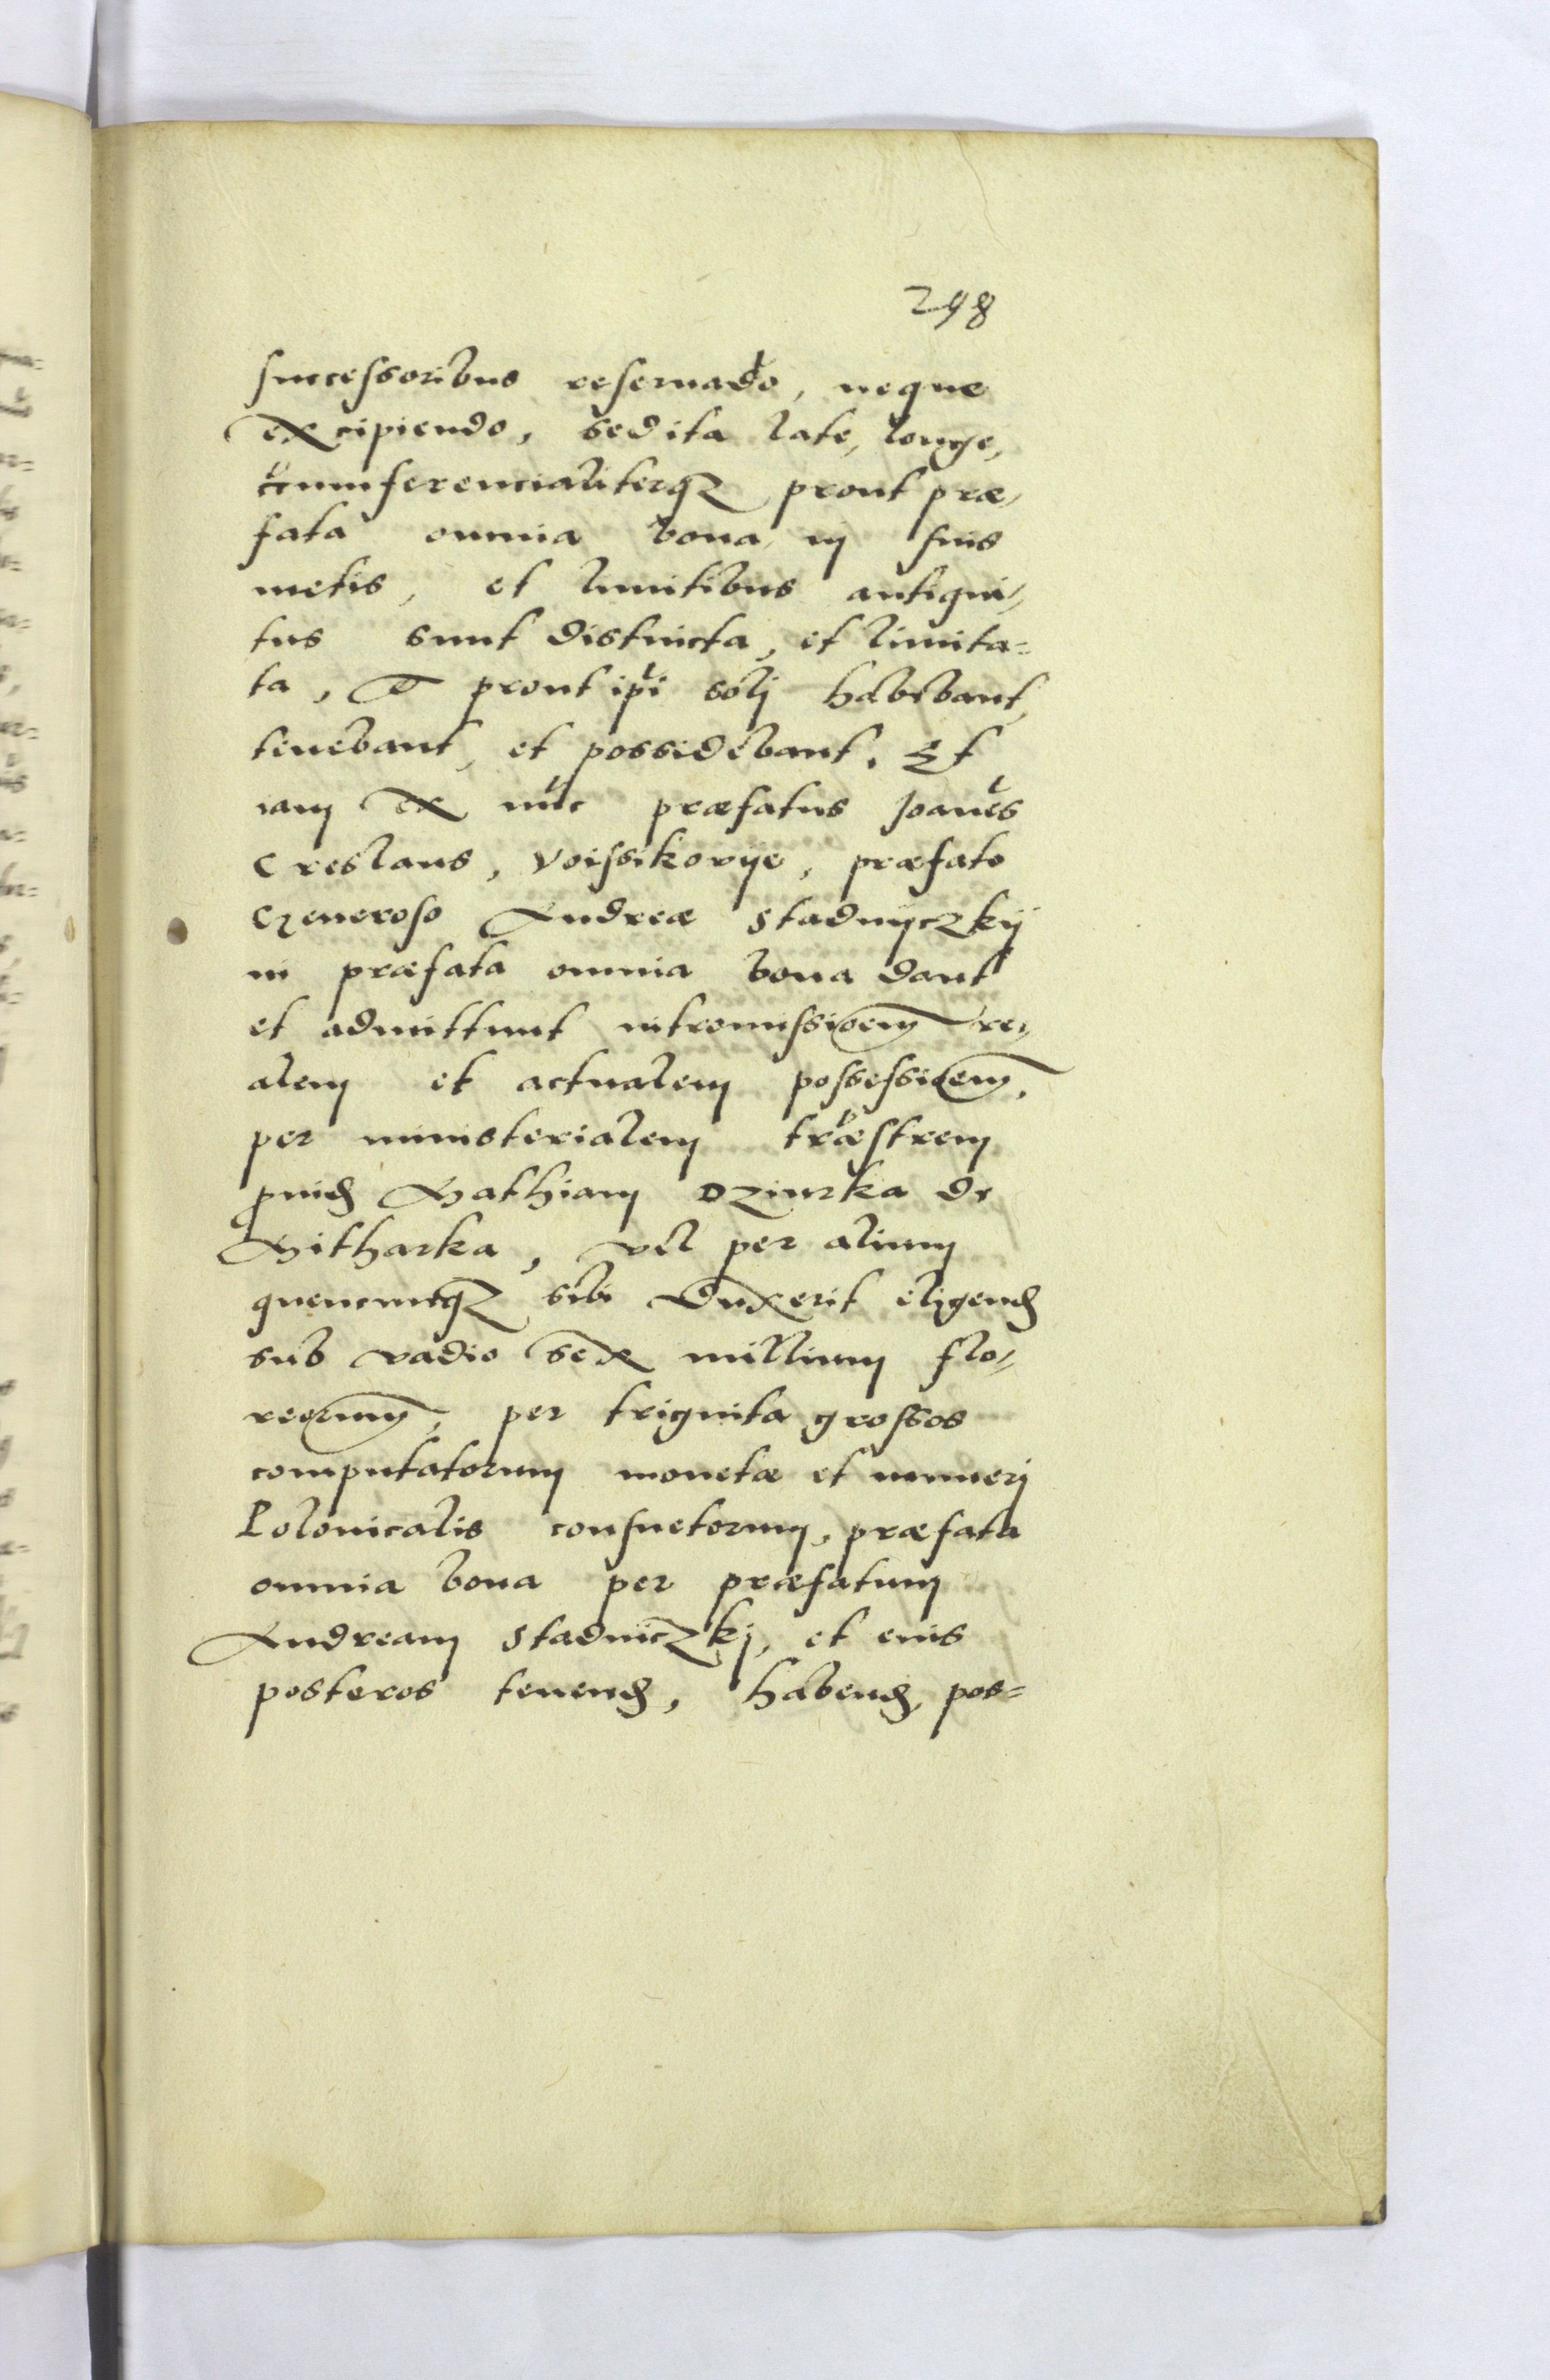 298
successoribus reseruado, neque
excipiendo, sed ita late, longe,
ccumferencialiterqz prout præ,
fata omnia bona in suis
metis, et limitibus antiqui,
tus sunt distincta, et limita=
ta, prout ipi soli habebant,
tenebant, et possidebant. Et
iam ex nuc præfatus Joanes
Creslaus, Voissikovye, præfato
Generoso Andreæ Stadnyczkij
in præfata omnia bona dant
et admittunt intromissioem re,
alem et actualem possessioem,
per ministerialem træstrem
Mathiam Dziurka de
Mitharka, vel per alium
quencunqz sibi duxerit eligend
sub vadio sex millium flo,
reorum, per triginta grossos
computatorum monetæ et numeri
Polonicalis consuetorum, præfata
omnia bona per præfatum
Andream Stadniczkj, et eius
posteros tenend, habend, pos=